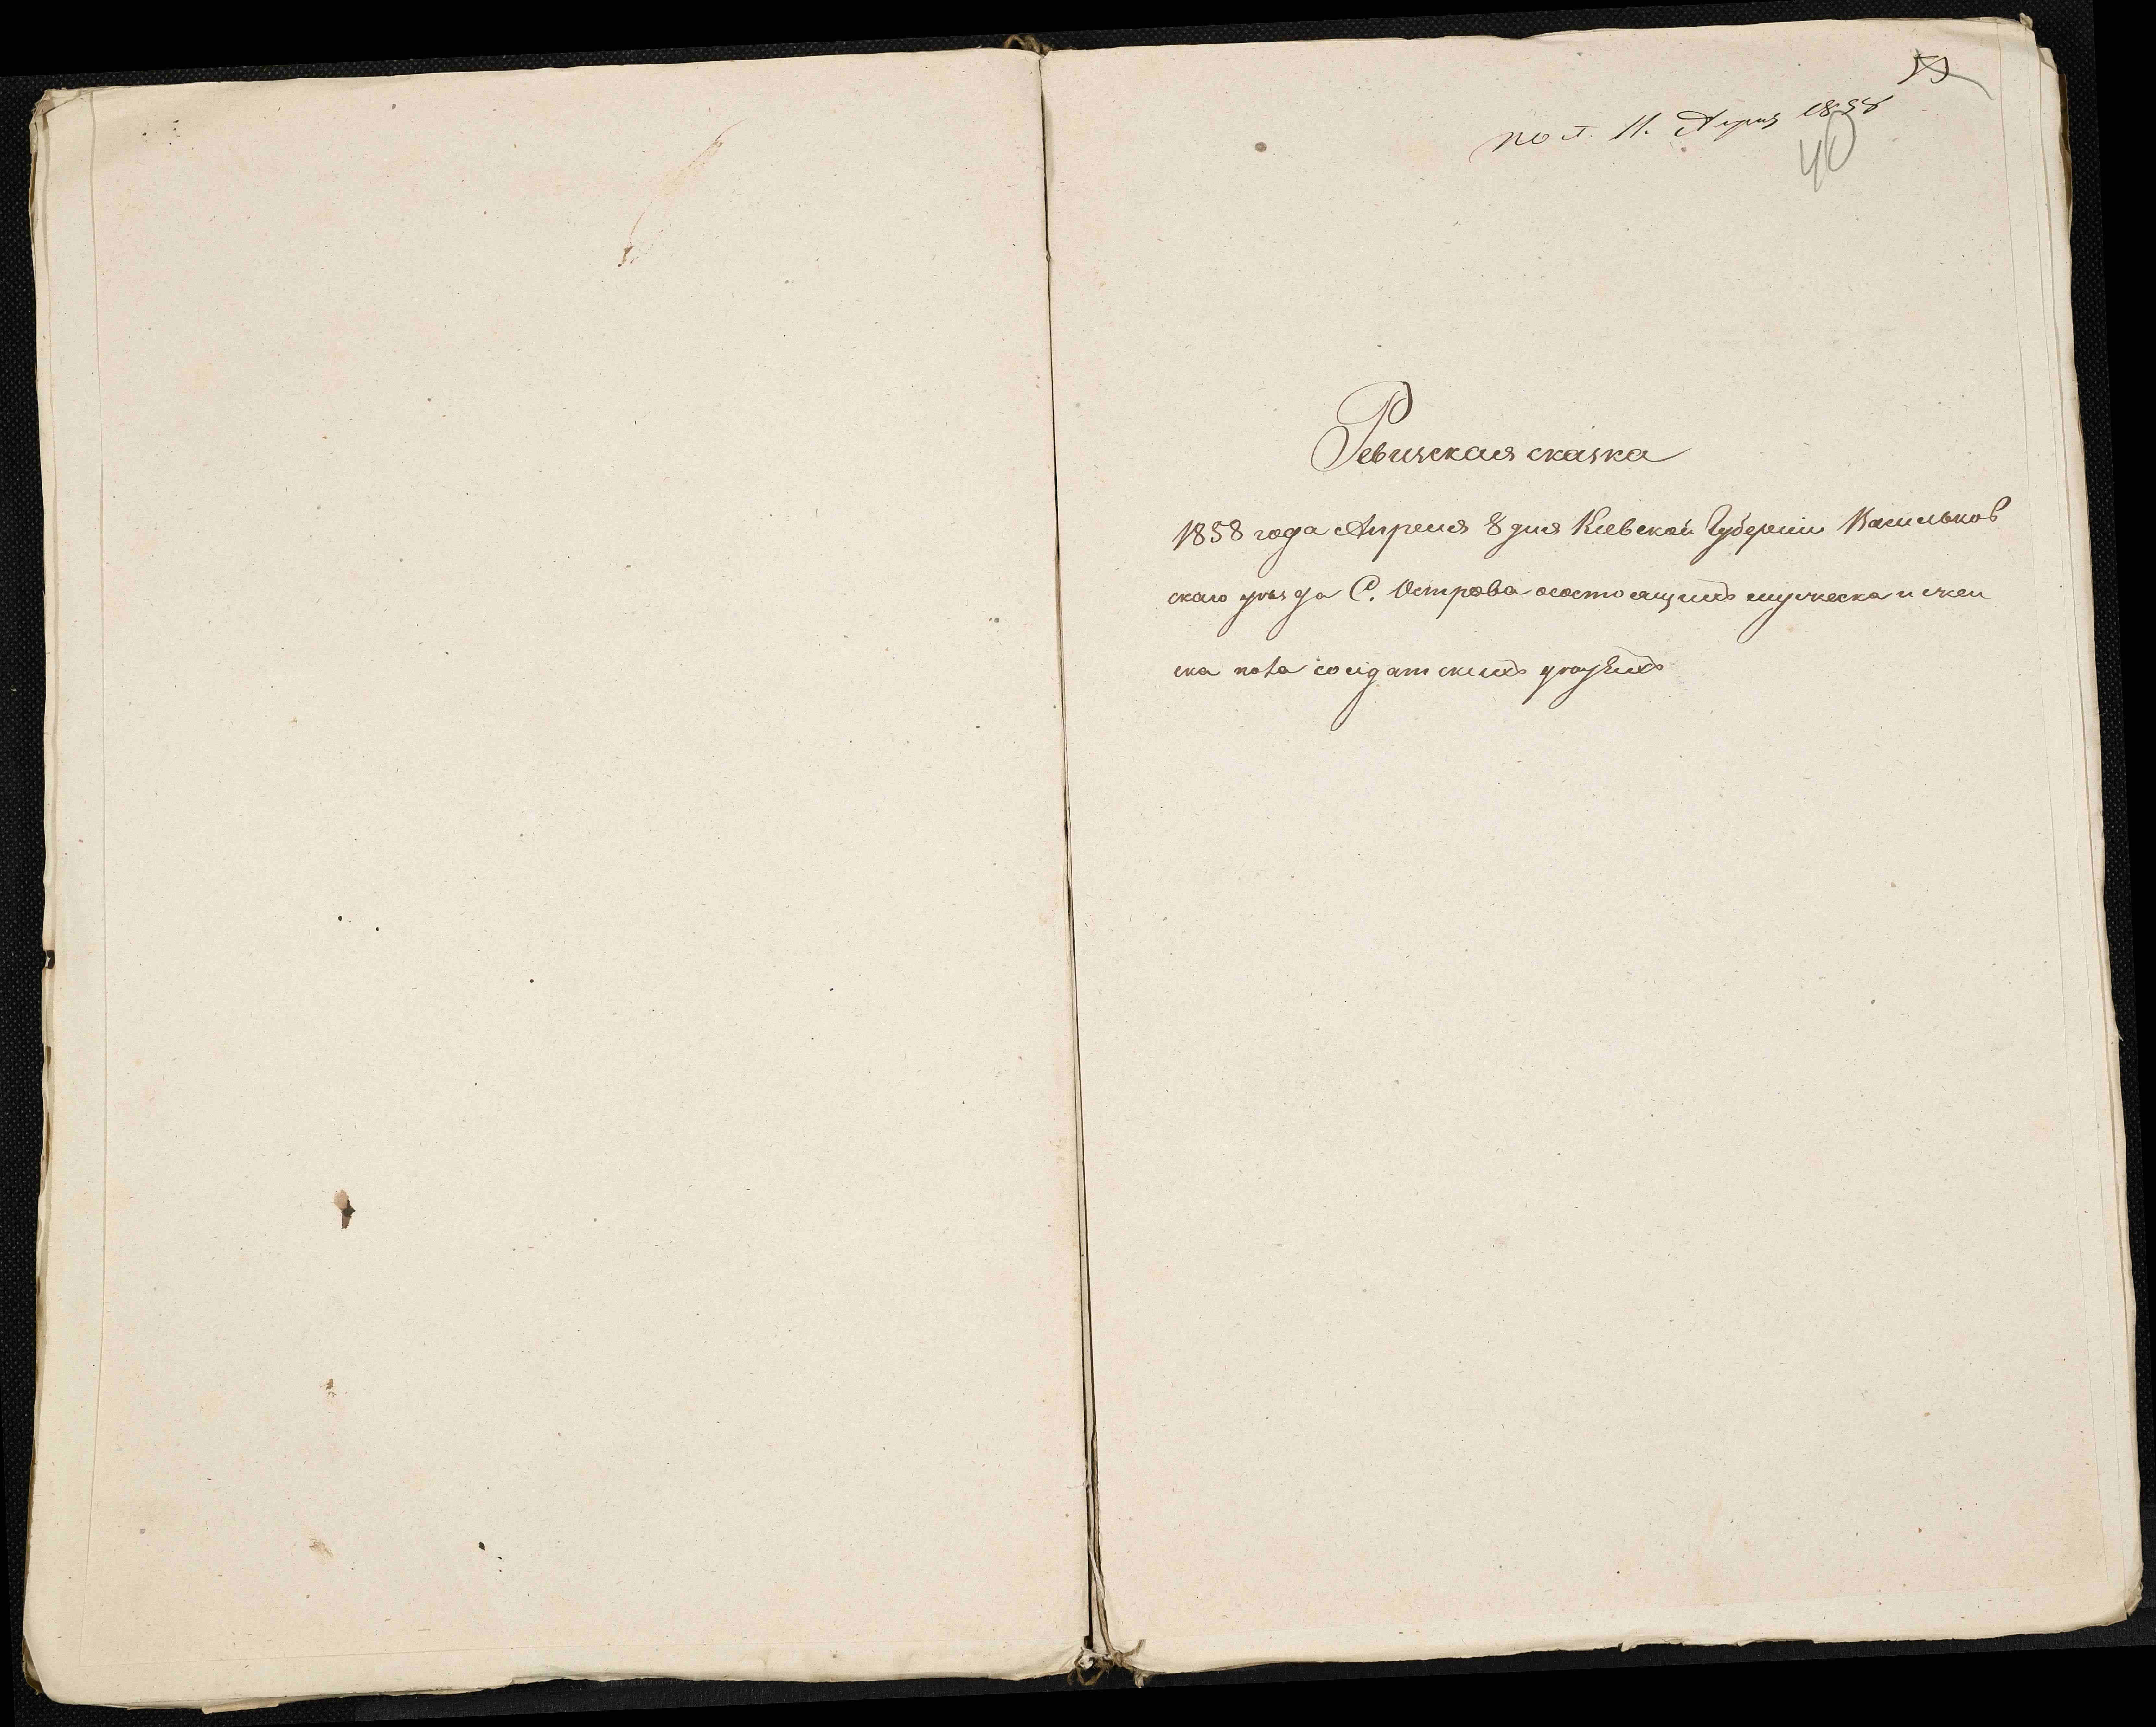 40
пол. 11. Апреля 1858
Ревизская сказка
1858 года Апреля 8 дня Кіевской Губерніи Васильков
скаго уезда С. Острова состоящимъ мужеска и жен
ска пола солдатскихъ